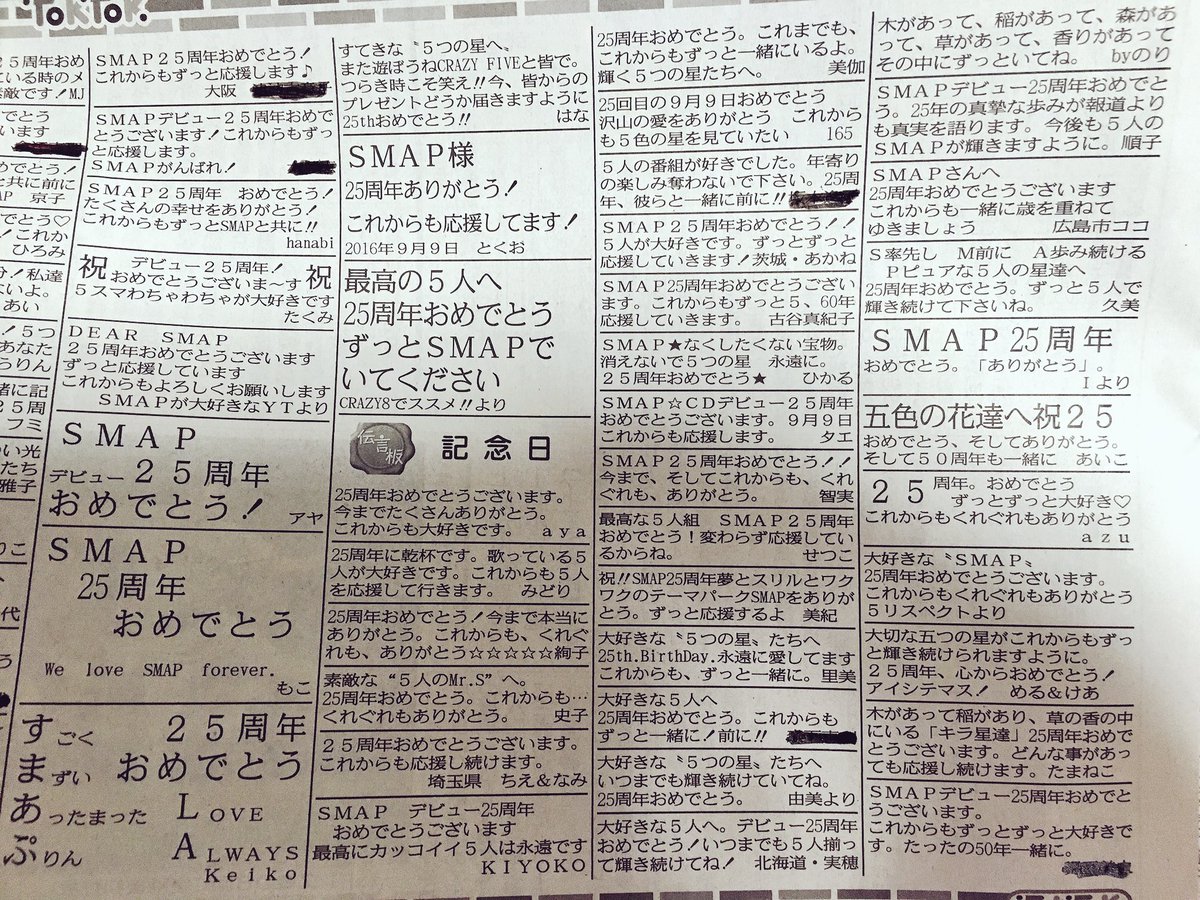 ToKToK
25周年おめ
ている時のメ
素敵です!MJ
でとう
います
めでとう
と共に前に
AP 京子
でとう♡
!これか
ひろみ
分!私達
ないよ。
あい
!5つ
あなた
らりん
緒に記
25周
フミ
い光
たち
雅子
りこ
代
SMAP25周年おめでとう!
これからもずっと応援します♪
大阪
SMAPデビュー25周年おめで
とうございます!これからもずっ
と応援します。
SMAPがんばれ!
SMAP25周年 おめでとう!
たくさんの幸せをありがとう!
これからもずっとSMAPと共に!!
hanabi
祝 デビュー25周年! 祝
おめでとうございま~す
5スマわちゃわちゃが大好きです
たくみ
DEAR SMAP
25周年おめでとうございます
ずっと応援しています
これからもよろしくお願いします
SMAPが大好きなYTより
SMAP
デビュー25周年
おめでとう! アヤ
SMAP
25周年
おめでとう
We love SMAP forever.
もこ
すごく 25周年
まずい おめでとう
あったまった LOVE
ぷりん ALWAYS
Keiko
すてきな〝5つの星へ〟
また遊ぼうねCRAZY FIVEと皆で。
つらき時こそ笑え!!今、皆からの
プレゼントどうか届きますように
25thおめでとう!! はな
SMAP様
25周年ありがとう!
これからも応援してます!
2016年9月9日 とくお
最高の5人へ
25周年おめでとう
ずっとSMAPで
いてください
CRAZY8でススメ!!より
伝言板 記念日
25周年おめでとうございます。
今までたくさんありがとう。
これからも大好きです。 aya
25周年に乾杯です。歌っている5
人が大好きです。これからも5人
を応援して行きます。 みどり
25周年おめでとう!今まで本当に
ありがとう。これからも、くれぐ
れも、ありがとう☆☆☆☆☆絢子
素敵な“5人のMr.S”へ。
25周年おめでとう。これからも…
くれぐれもありがとう。 史子
25周年おめでとうございます。
これからも応援し続けます。
埼玉県 ちえ&なみ
SMAP デビュー25周年
おめでとうございます
最高にカッコイイ5人は永遠です
KIYOKO
25周年おめでとう。これまでも、
これからもずっと一緒にいるよ。
輝く5つの星たちへ。 美伽
25回目の9月9日おめでとう
沢山の愛をありがとう これから
も5色の星を見ていたい 165
5人の番組が好きでした。年寄り
の楽しみ奪わないで下さい。25周
年、彼らと一緒に前に!!
SMAP25周年おめでとう!!
5人が大好きです。ずっとずっと
応援していきます!茨城・あかね
SMAP25周年おめでとうござい
ます。これからもずっと5、60年
応援していきます。 古谷真紀子
SMAP★なくしたくない宝物。
消えないで5つの星 永遠に。
25周年おめでとう★ ひかる
SMAP☆CDデビュー25周年
おめでとうございます。9月9日
これからも応援します。 タエ
SMAP25周年おめでとう!!
今まで、そしてこれからも、くれ
ぐれも、ありがとう。 智実
最高な5人組 SMAP25周年
おめでとう!変わらず応援してい
るからね。 せつこ
祝!!SMAP25周年夢とスリルとワク
ワクのテーマパークSMAPをありが
とう。ずっと応援するよ 美紀
大好きな〝5つの星〟たちへ
25th.BirthDay.永遠に愛してます
これからも、ずっと一緒に。里美
大好きな5人へ
25周年おめでとう。これからも
ずっと一緒に!前に!!
大好きな〝5つの星〟たちへ
いつまでも輝き続けていてね。
25周年おめでとう。 由美より
大好きな5人へ。デビュー25周年
おめでとう!いつまでも5人揃っ
て輝き続けてね! 北海道・実穂
木があって、稲があって、森があ
って、草があって、香りがあって
その中にずっといてね。 byのり
SMAPデビュー25周年おめでと
う。25年の真摯な歩みが報道より
も真実を語ります。今後も5人の
SMAPが輝きますように。順子
SMAPさんへ
25周年おめでとうございます
これからも一緒に歳を重ねて
ゆきましょう 広島市ココ
S率先し M前に A歩み続ける
Pピュアな5人の星達へ
25周年おめでとう。ずっと5人で
輝き続けて下さいね。 久美
SMAP25周年
おめでとう。「ありがとう」。
Iより
五色の花達へ祝25
おめでとう、そしてありがとう。
そして50周年も一緒に あいこ
25周年。おめでとう
ずっとずっと大好き♡
これからもくれぐれもありがとう
azu
大好きな〝SMAP〟
25周年おめでとうございます。
これからもくれぐれもありがとう
5リスペクトより
大切な五つの星がこれからもずっ
と輝き続けられますように。
25周年、心からおめでとう!
アイシテマス! める&けあ
木があって稲があり、草の香の中
にいる「キラ星達」25周年おめで
とうございます。どんな事があっ
ても応援し続けます。たまねこ
SMAPデビュー25周年おめでと
うございます。
これからもずっとずっと大好きで
す。たったの50年一緒に。